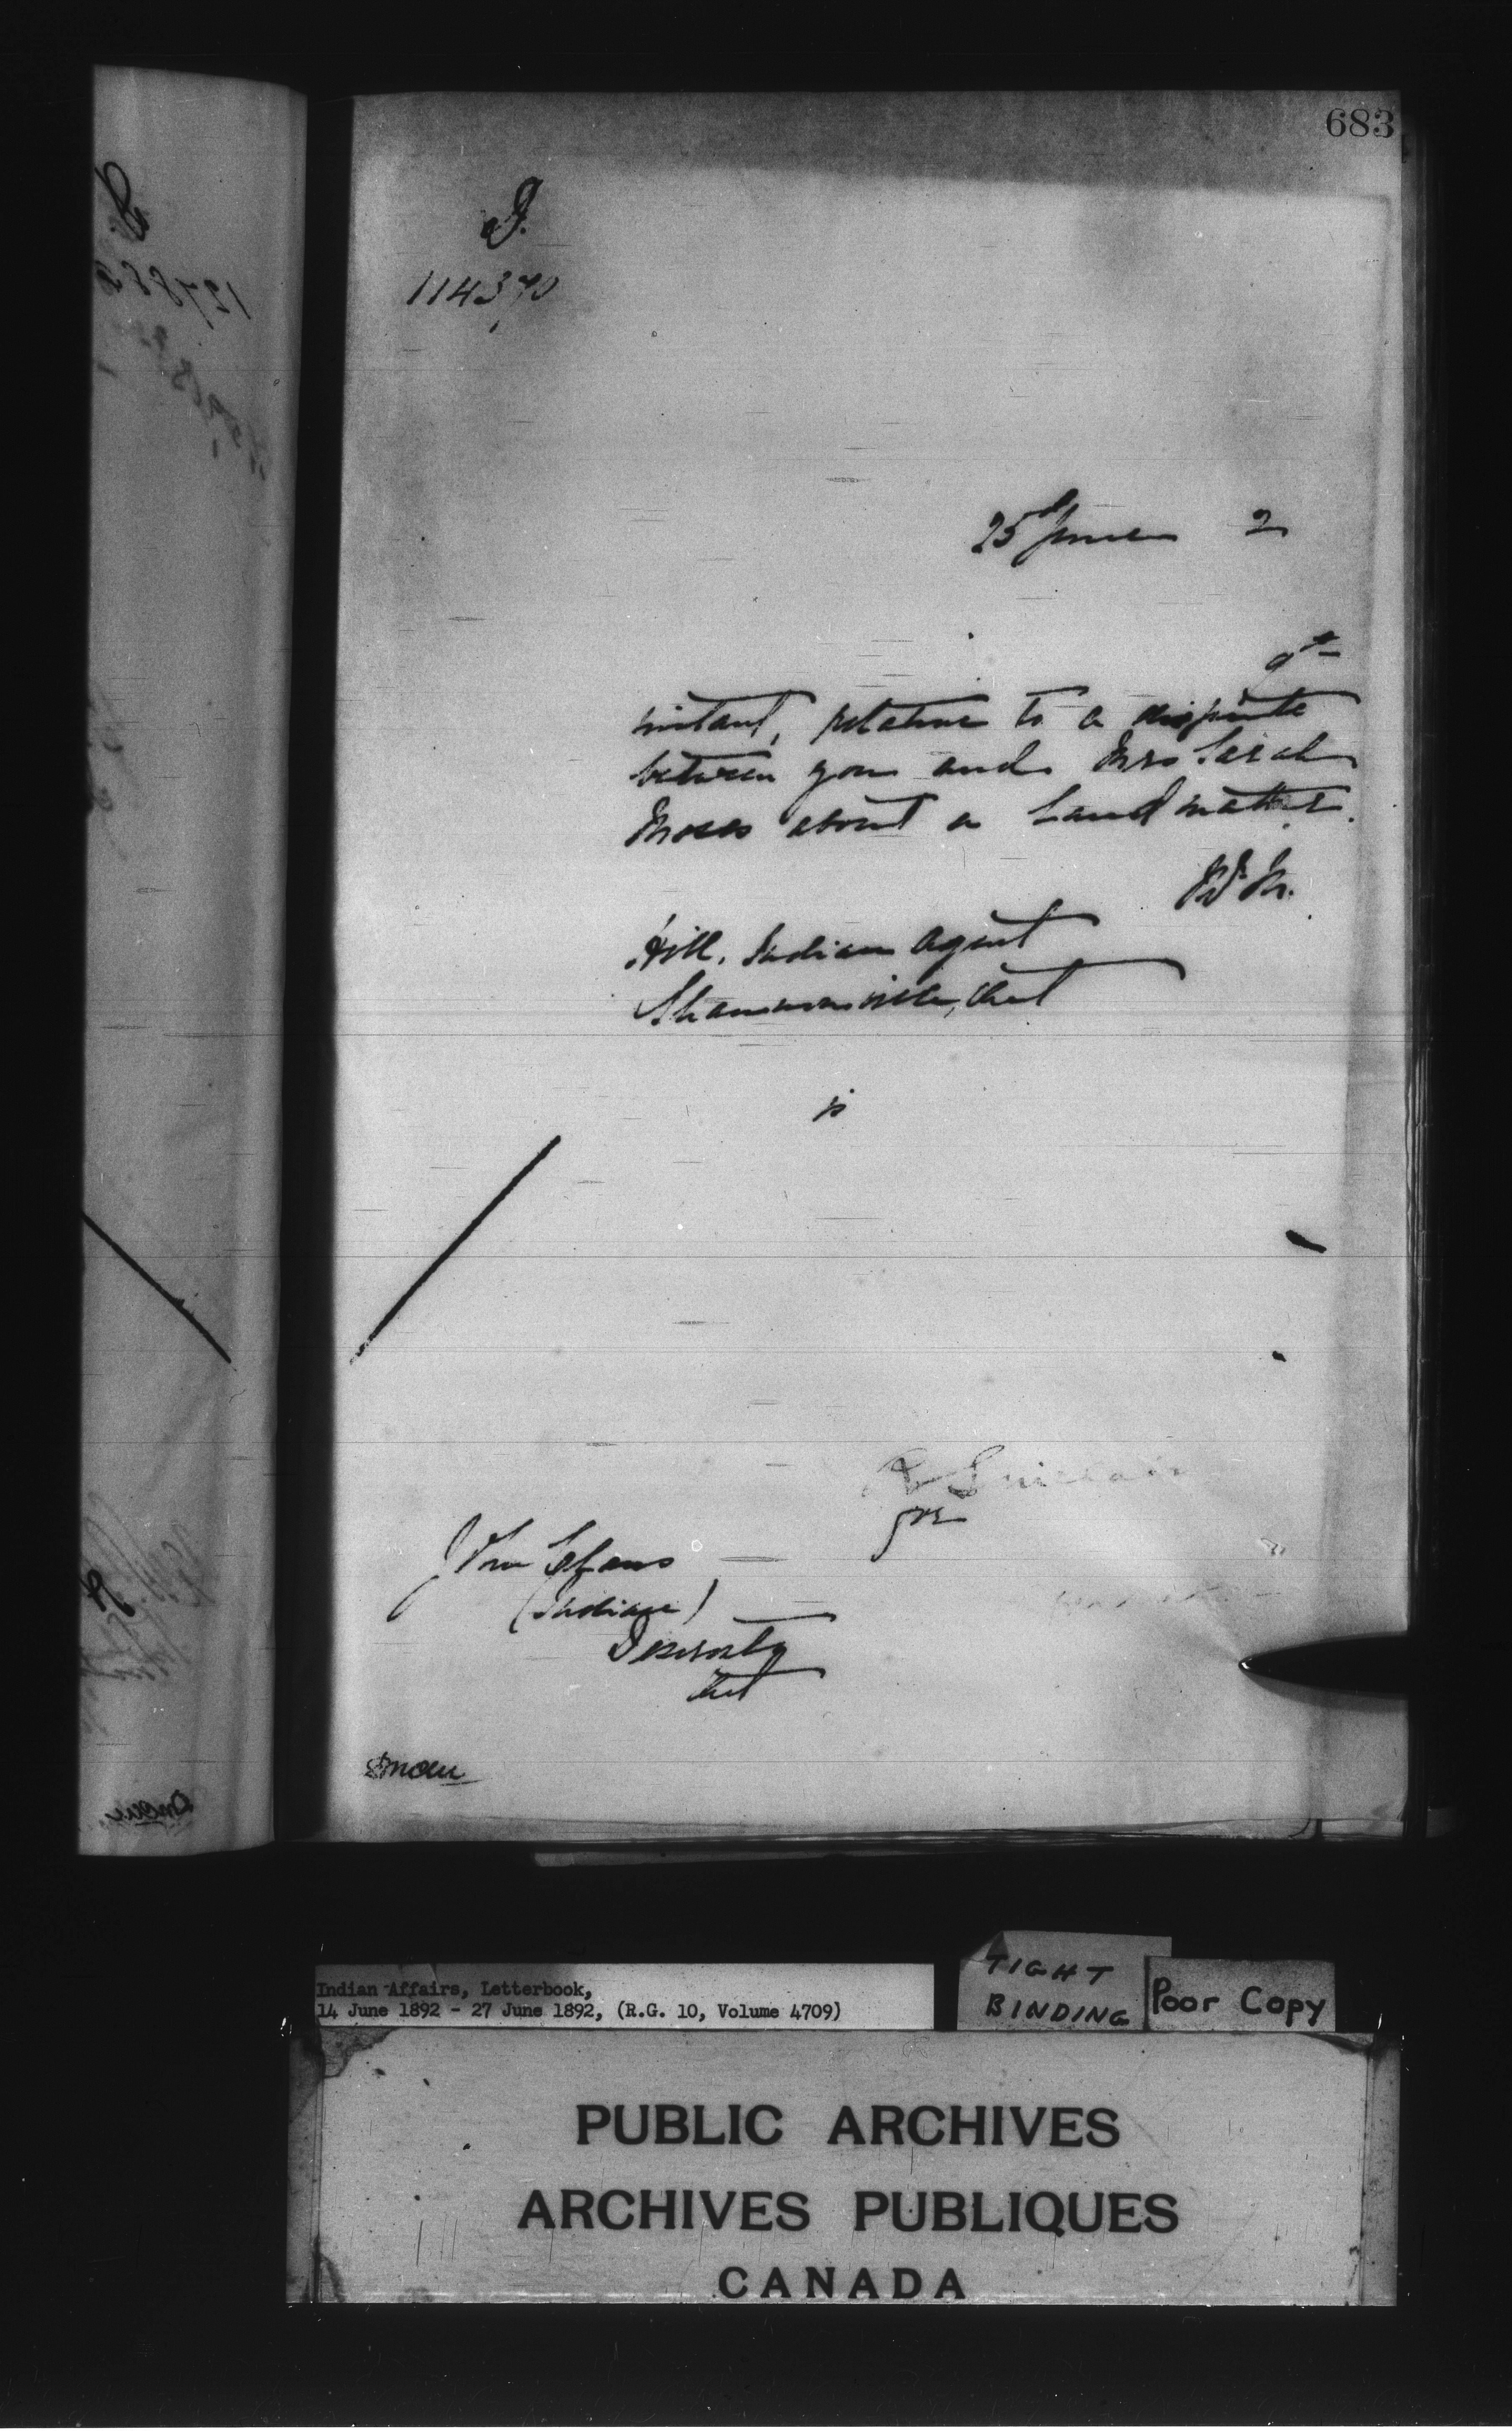 683
J.
114370
25 June 2
9th
instant, relative to a dispute
between you and Mrs Sarah
Moses about a Land matter.
Hill, Indian Agent
Shannonville, Ont
is
R Sinclair
for
John
(Indian)
Deseronto
Ont
Indian Affairs, Letterbook,
14 June 1892 - 27 June 1892, (R.G. 10, Volume 4709)
TIGHT
BINDING
Poor Copy
PUBLIC ARCHIVES
ARCHIVES PUBLIQUES
CANADA